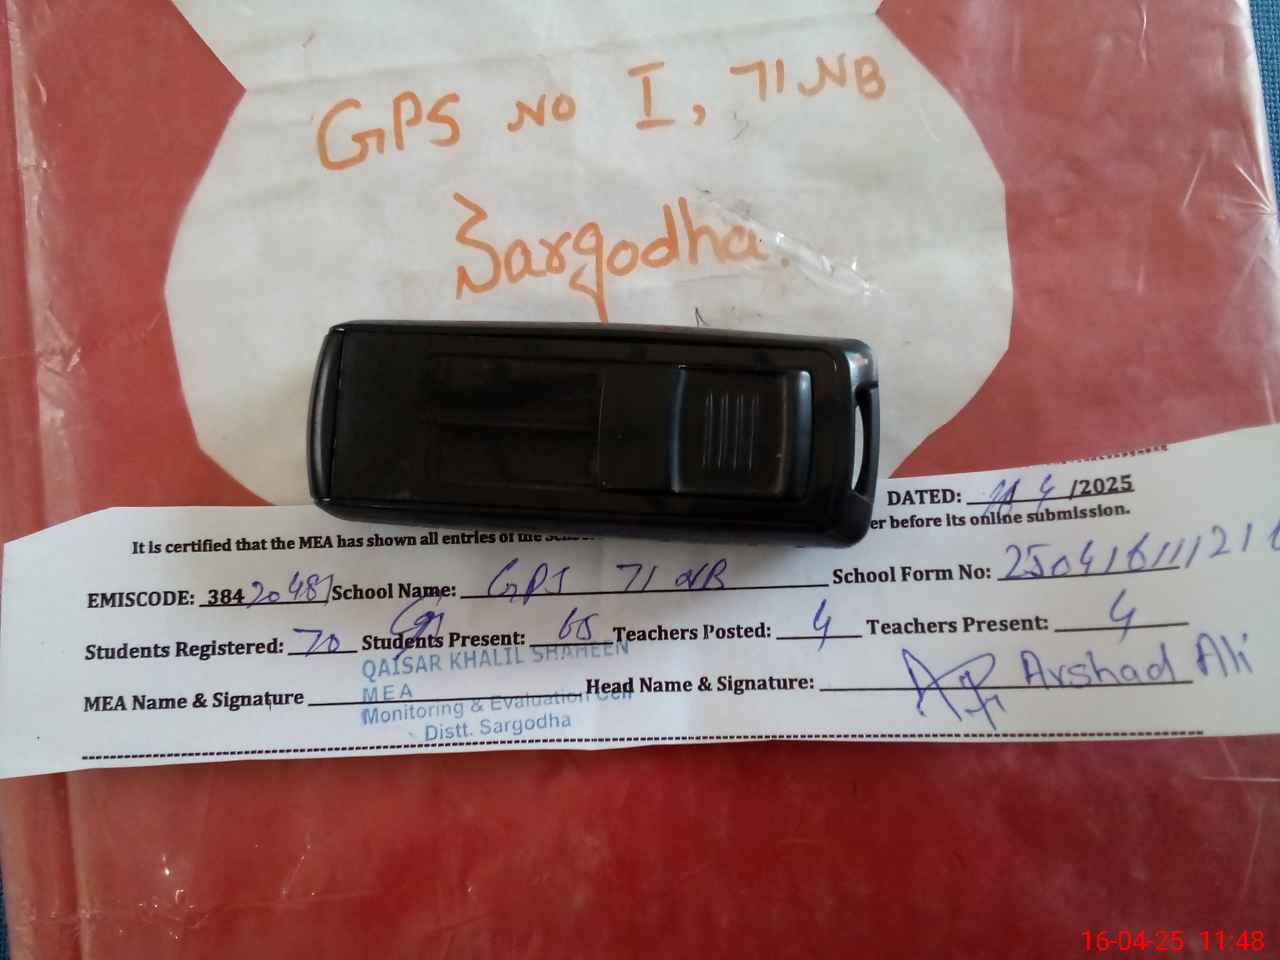 GPS No I, 71 NB
Sargodha.
DATED: 16 4 /2025
It is certified that the MEA has shown all entries of the er before its online submission.
EMISCODE: 38420481 School Name: GPS 71 NB School Form No: 2504161112
Students Registered: 70 Students Present: 65 Teachers Posted: 4 Teachers Present: 4
QAISAR KHALIL SHAHEEN
MEA Name & Signature MEA Head Name & Signature: Arshad Ali
Monitoring & Evaluation Cell
Distt. Sargodha
16-04-25 11:48